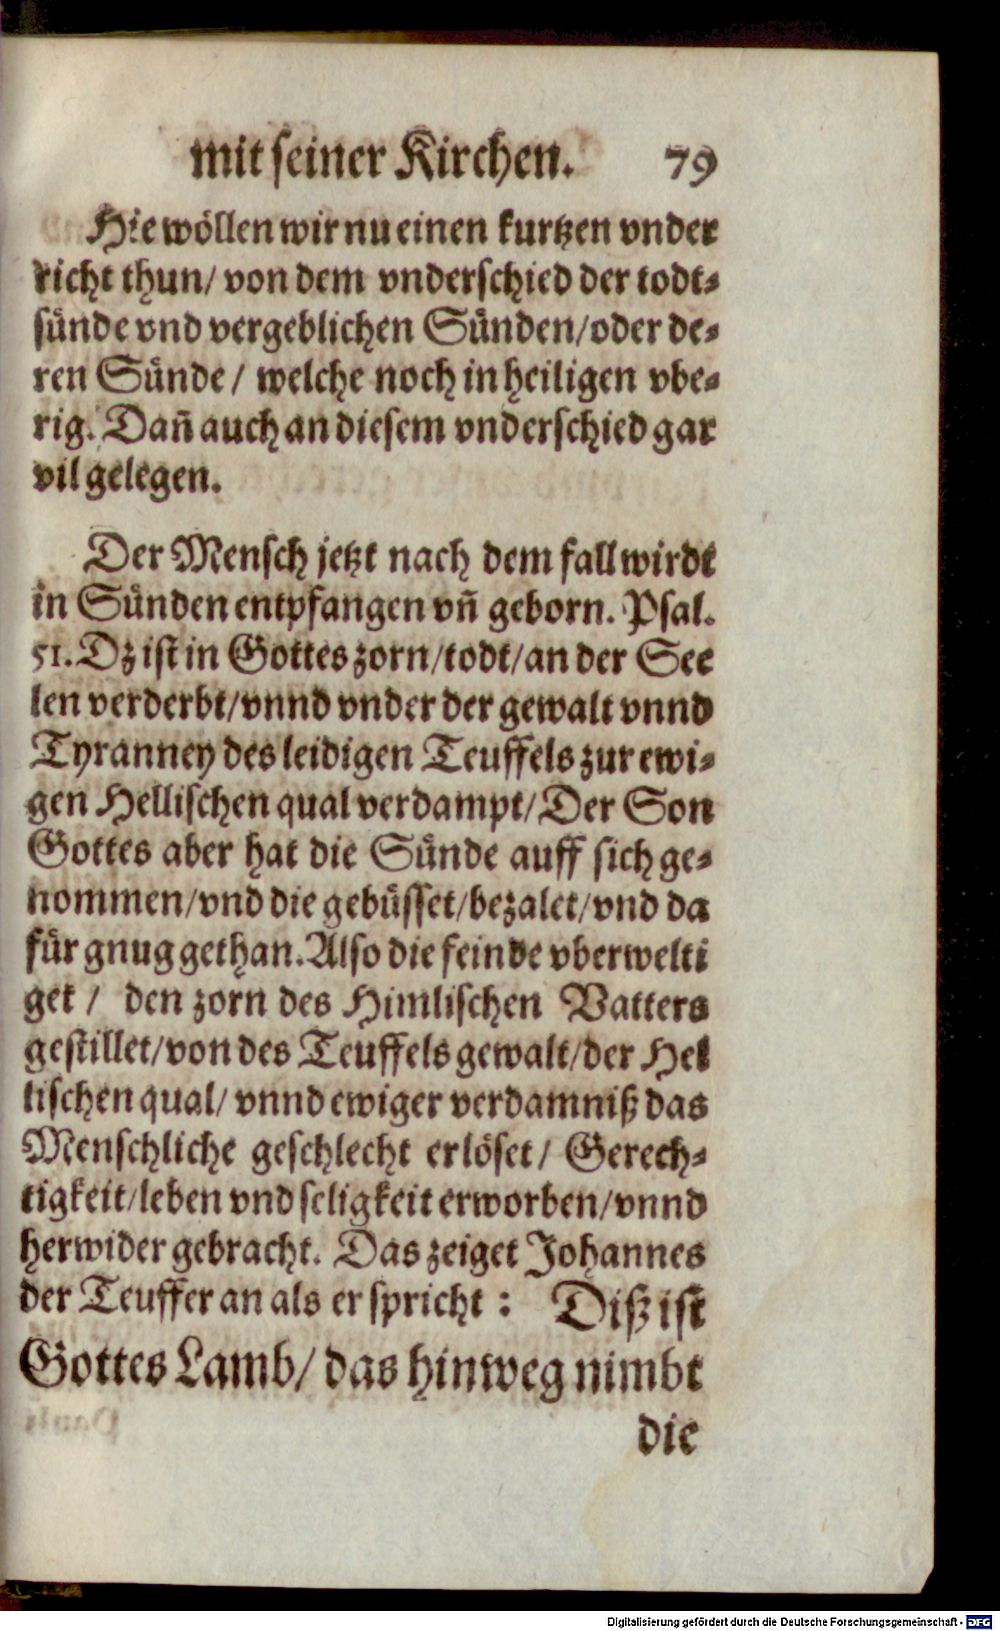 mit seiner Kirchen. 79
Hie wöllen wir nu einen kurtzen vnder
richt thun/ von dem vnderschied der todt⸗
sünde vnd vergeblichen Sünden/ oder de⸗
ren Sünde/ welche noch in heiligen vbe⸗
rig. Dan̄ auch an diesem vnderschied gar
vil gelegen.
Der Mensch jetzt nach dem fall wirdt
in Sünden entpfangen vn̄ geborn. Psal.
51. Dz ist in Gottes zorn/ todt/ an der See
len verderbt/ vnnd vnder der gewalt vnnd
Tyranney des leidigen Teuffels zur ewi⸗
gen Hellischen qual verdampt/ Der Son
Gottes aber hat die Sünde auff sich ge⸗
nommen/ vnd die gebüsset/ bezalet/ vnd da
für gnug gethan. Also die feinde vberwelti
get/ den zorn des Himlischen Vatters
gestillet/ von des Teuffels gewalt/ der Hel
lischen qual/ vnnd ewiger verdamniß das
Menschliche geschlecht erlöset/ Gerech⸗
tigkeit/ leben vnd seligkeit erworben/ vnnd
herwider gebracht. Das zeiget Johannes
der Teuffer an als er spricht: Diß ist
Gottes Lamb/ das hinweg nimbt
die
Digitalisierung gefördert durch die Deutsche Forschungsgemeinschaft - DFG